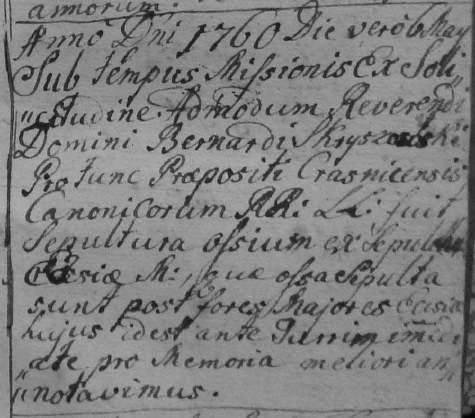 annorum.
Anno Dni 1760 Die vero 6 May
Sub tempus Missionis Ex Soli„
„citudine Admodum Reverendi
Domini Bernardi
Pro tunc Præpositi Crasnicensis
Canonicorum RR: LL: fuit
Sepultura ossium ex Sepulchro
Ecclsiæ M: quæ ossa Sepulta
sunt post fores Majores Ecclsiæ
hujus idest ante Turrim immedi
„ate, pro Memoria meliori an„
„notavimus.